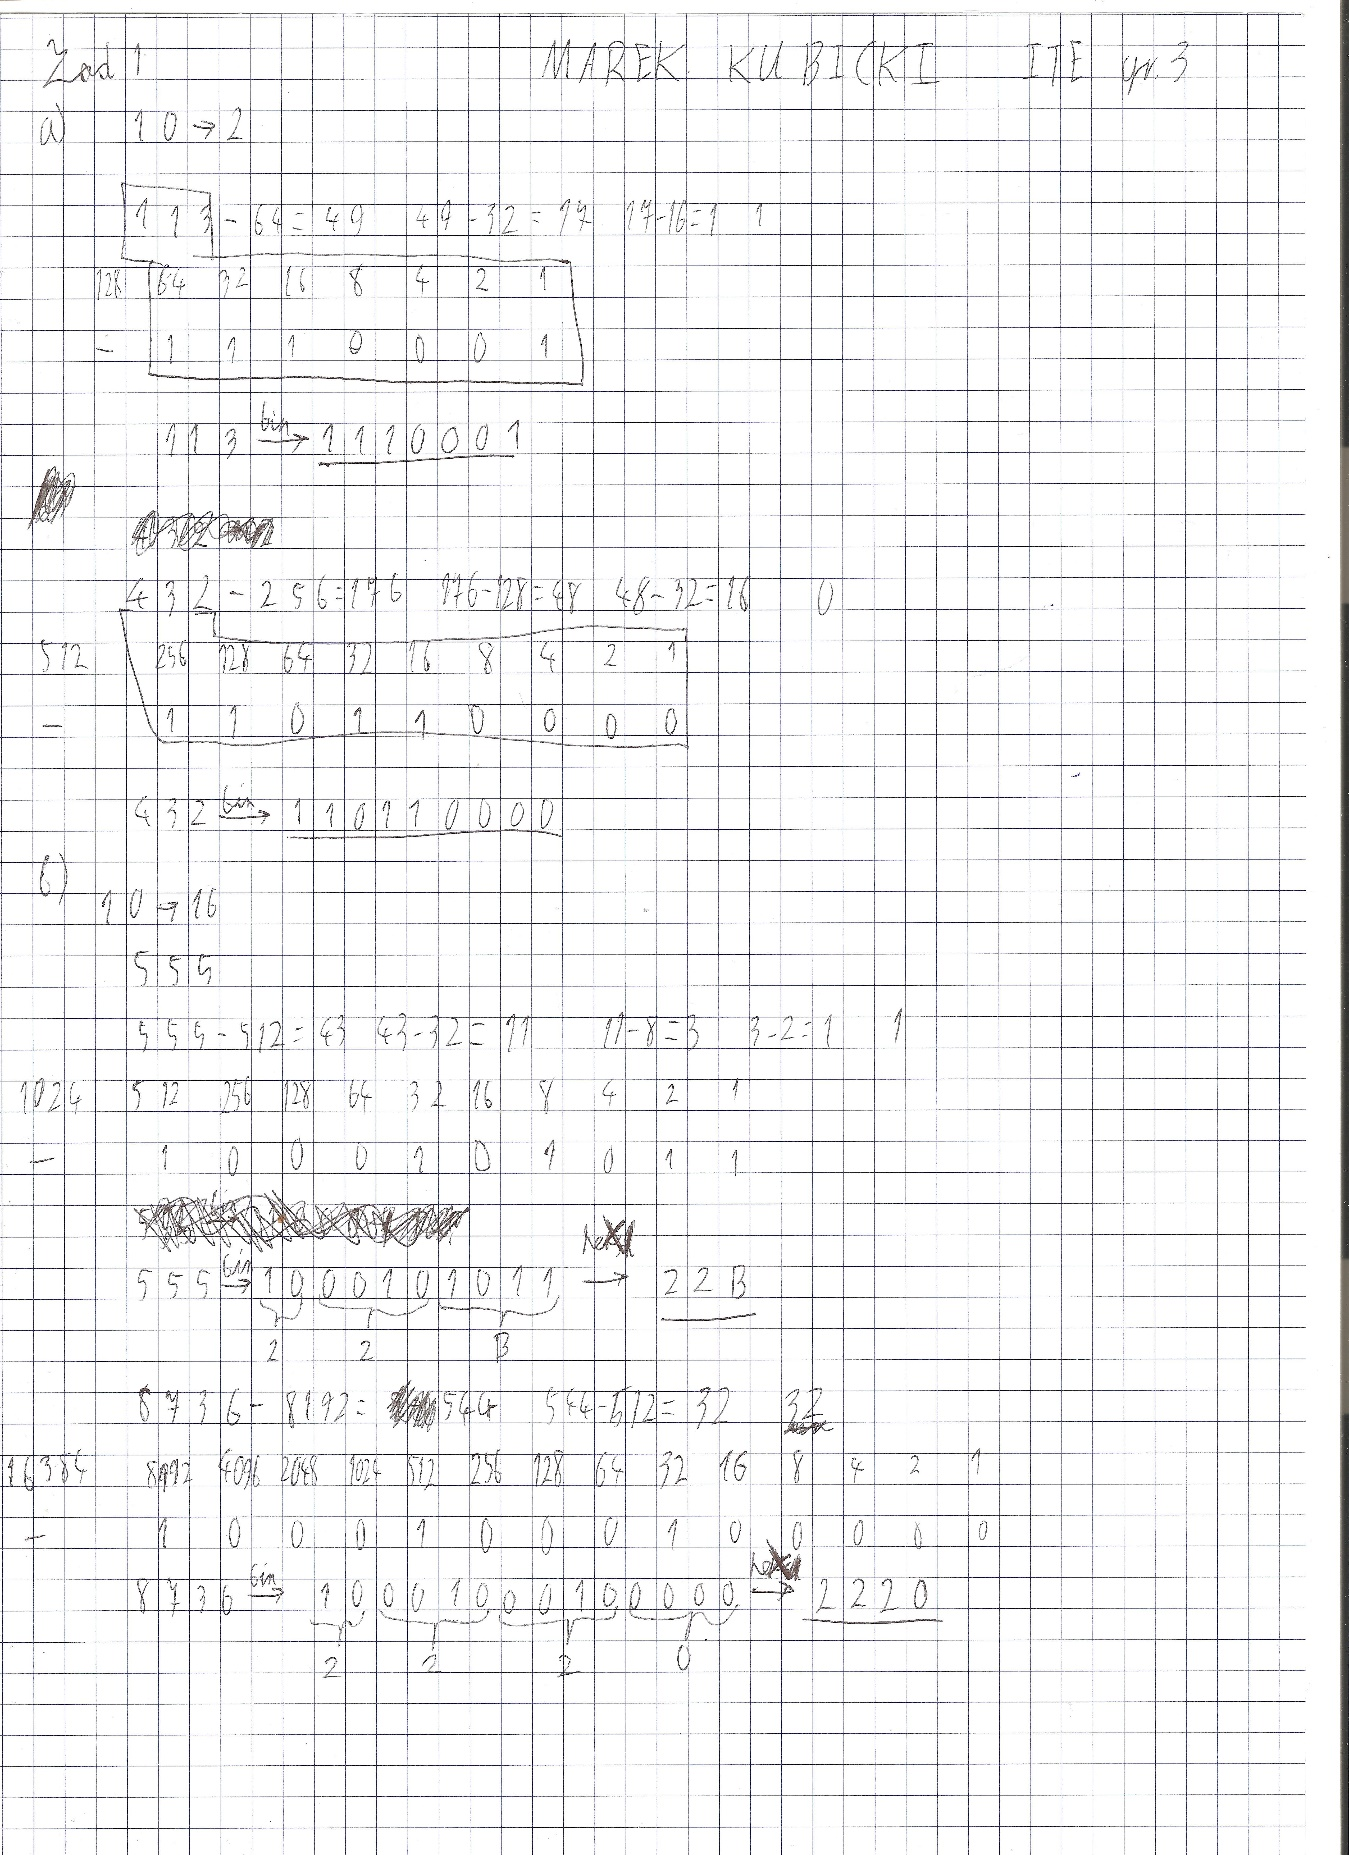 Zad 1 MAREK KUBICKI ITE gr. 3
a) 10 → 2
113 - 64 = 49 49 - 32 = 17 17-16=1 1
128 64 32 16 8 4 2 1
- 1 1 1 0 0 0 1
113 bin→ 1110001
432 - 256=176 176-128=48 48-32=16 0
512 256 128 64 32 16 8 4 2 1
- 1 1 0 1 1 0 0 0 0
432 bin→ 110110000
b)
10 → 16
555
555-512=43 43-32=11 11-8=3 3-2=1 1
1024 512 256 128 64 32 16 8 4 2 1
- 1 0 0 0 1 0 1 0 1 1
555 bin→ 1000101011 → 22B
2 2 B
8736 - 8192= 544 544-512= 32 32
16384 8192 4096 2048 1024 512 256 128 64 32 16 8 4 2 1
- 1 0 0 0 1 0 0 0 1 0 0 0 0 0
8736 bin→ 10001000100000 → 2220
2 2 2 0